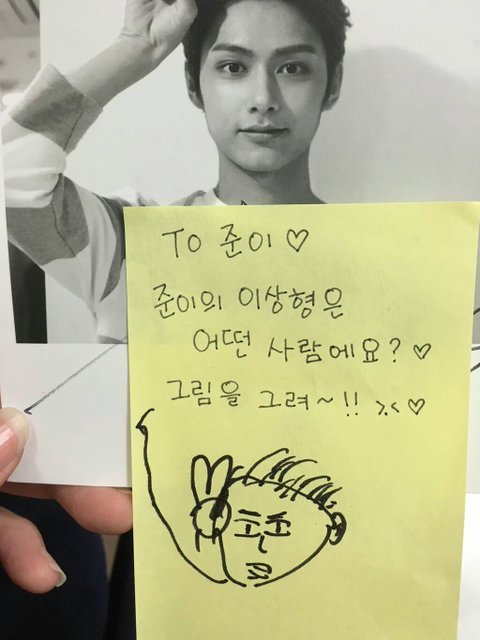 TO 준이♡
준이의 이상형은
어떤 사람에요?♡
그림을 그려~!! >.<♡